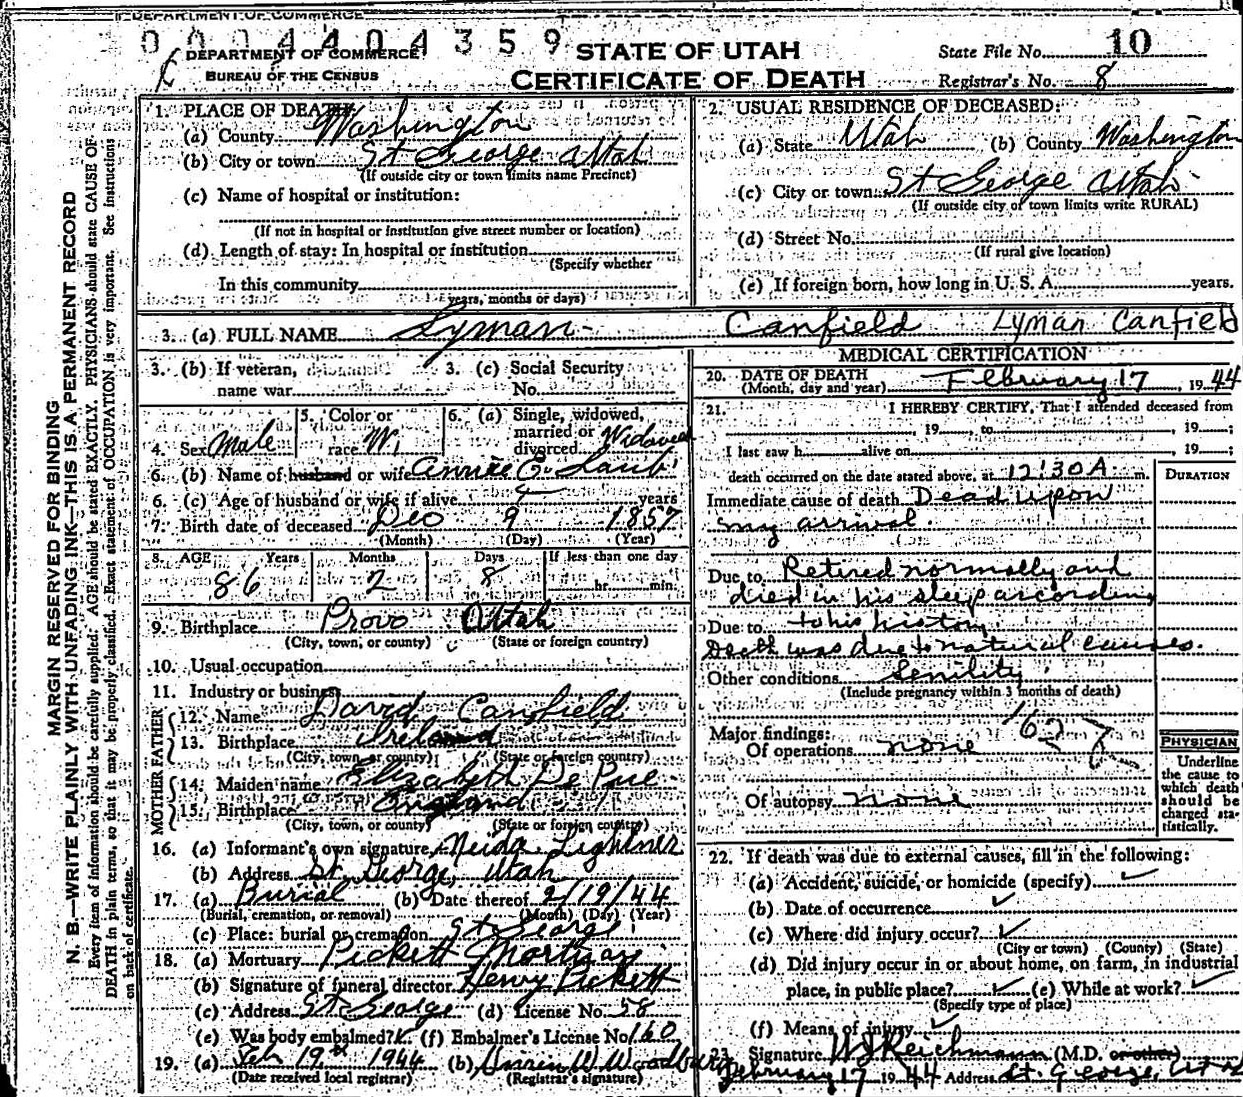 DEPARTMENT OF COMMERCE
0 0 0 4 4 0 4 3 5 9
DEPARTMENT OF COMMERCE
BUREAU OF THE CENSUS
STATE OF UTAH
CERTIFICATE OF DEATH
State File No. 10
Registrar's No. 8
MARGIN RESERVED FOR BINDING
N. B.—WRITE PLAINLY WITH UNFADING INK—THIS IS A PERMANENT RECORD
Every item of information should be carefully supplied. AGE should be stated EXACTLY. PHYSICIANS should state CAUSE OF
DEATH in plain terms, so that it may be properly classified. Exact statement of OCCUPATION is very important. See instructions
on back of certificate.
1. PLACE OF DEATH:
(a) County Washington
(b) City or town St George Utah
(If outside city or town limits name Precinct)
(c) Name of hospital or institution:
(If not in hospital or institution give street number or location)
(d) Length of stay: In hospital or institution
(Specify whether
In this community
years, months or days)
2. USUAL RESIDENCE OF DECEASED:
(a) State Utah (b) County Washington
(c) City or town St George Utah
(If outside city or town limits write RURAL)
(d) Street No.
(If rural give location)
(e) If foreign born, how long in U. S. A. years.
3. (a) FULL NAME Lyman Canfield Lyman Canfield
3. (b) If veteran, name war
3. (c) Social Security No.
4. Sex Male
5. Color or race W.
6. (a) Single, widowed, married or divorced Widowed
6. (b) Name of husband or wife Annie C. Laub
6. (c) Age of husband or wife if alive years
7. Birth date of deceased Dec 9 1857
(Month) (Day) (Year)
8. AGE Years Months Days If less than one day
86 2 8 hr. min.
9. Birthplace Provo Utah
(City, town, or county) (State or foreign country)
10. Usual occupation
11. Industry or business
FATHER
12. Name David Canfield
13. Birthplace Ireland
(City, town, or county) (State or foreign country)
MOTHER
14. Maiden name Elizabeth De Pue
15. Birthplace England
(City, town, or county) (State or foreign country)
16. (a) Informant's own signature Neida Lightner
(b) Address St. George, Utah
17. (a) Burial (b) Date thereof 2/19/44
(Burial, cremation, or removal) (Month) (Day) (Year)
(c) Place: burial or cremation St George
18. (a) Mortuary Pickett Mortuary
(b) Signature of funeral director Henry Pickett
(c) Address St George (d) License No. 58
(e) Was body embalmed? (f) Embalmer's License No. 160
19. (a) Feb 19th 1944 (b) W Woodbury
(Date received local registrar) (Registrar's signature)
MEDICAL CERTIFICATION
20. DATE OF DEATH
(Month, day and year) February 17, 1944
21. I HEREBY CERTIFY, That I attended deceased from
, 19 , to , 19 ;
I last saw h alive on , 19 ;
death occurred on the date stated above, at 12:30 A. m.
DURATION
Immediate cause of death Dead upon
my arrival.
Due to Retired normally and
died in his sleep according
Due to to his history.
Death was due to natural causes.
Other conditions Senility
(Include pregnancy within 3 months of death)
162
Major findings:
Of operations none
Of autopsy none
PHYSICIAN
Underline
the cause to
which death
should be
charged sta-
tistically.
22. If death was due to external causes, fill in the following:
(a) Accident, suicide, or homicide (specify) ✓
(b) Date of occurrence ✓
(c) Where did injury occur? ✓
(City or town) (County) (State)
(d) Did injury occur in or about home, on farm, in industrial
place, in public place? ✓ (e) While at work? ✓
(Specify type of place)
(f) Means of injury ✓
23. Signature W J Reichmann (M.D. or other)
February 17 1944 Address St. George, Utah